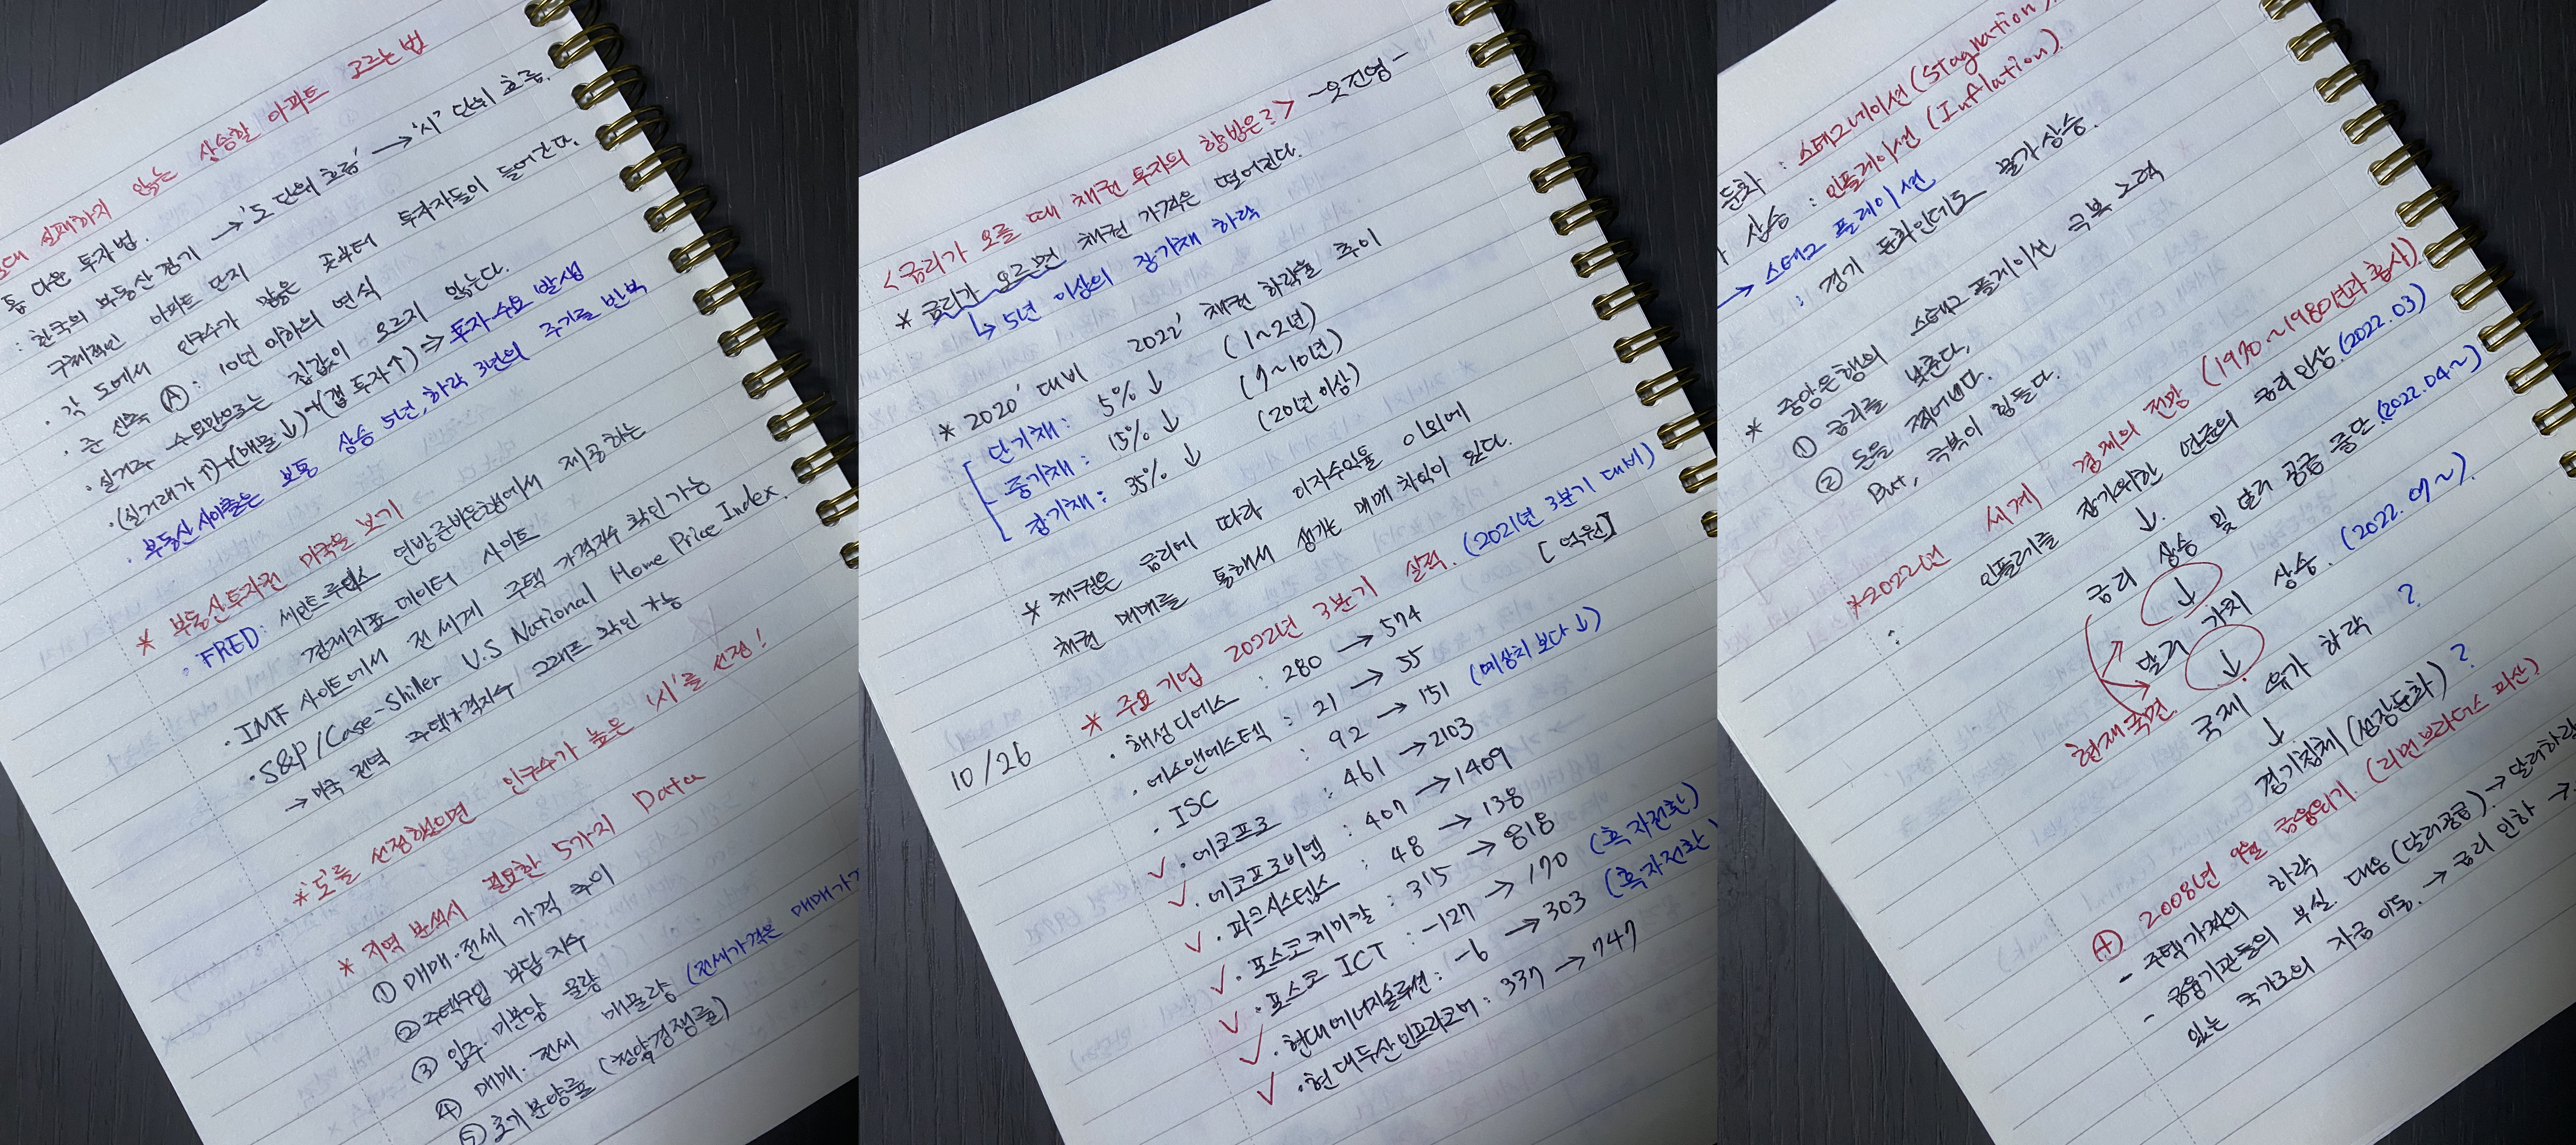 절대 실패하지 않는 상승할 아파트 고르는 법
톱 다운 투자법.
: 한국의 부동산 경기 → '도 단위 흐름' → '시' 단위 흐름.
구체적인 아파트 단지
· 각 도에서 인구수가 많은 곳부터 투자자들이 들어간다.
· 준 신축 Ⓐ : 10년 이하의 연식
· 실거주 수요만으로는 집값이 오르지 않는다.
· (실거래가↑)+(매물↓)+(갭 투자↑) ⇒ 투자 수요 발생
· 부동산 사이클은 보통 상승 5년, 하락 3년의 주기를 반복
* 부동산 투자전 미국을 보기
· FRED: 세인트루이스 연방준비은행에서 제공하는
경제지표 데이터 사이트
· IMF 사이트에서 전 세계 주택 가격지수 확인가능
· S&P/Case-Shiller U.S National Home Price Index.
→ 미국 전역 주택가격지수 그래프 확인 가능
* '도'를 선정했으면 인구수가 높은 '시'를 선정!
* 지역 분석시 필요한 5가지 Data
① 매매·전세 가격 추이
② 주택구입 부담지수
③ 입주·미분양 물량
④ 매매·전세 매물량 (전세가격은 매매가
⑤ 초기 분양률 (청약경쟁률)
<금리가 오를 때 채권 투자의 향방은?> -오건영-
* 금리가 오르면 채권 가격은 떨어진다.
↳ 5년 이상의 장기채 하락
* 2020' 대비 2022' 채권 하락율 추이
단기채 : 5% ↓ (1~2년)
중기채 : 15% ↓ (7~10년)
장기채 : 35% ↓ (20년 이상)
* 채권은 금리에 따라 이자수익율 이외에
채권 매매를 통해서 생기는 매매 차익이 있다.
* 주요 기업 2022년 3분기 실적. (2021년 3분기 대비)
[억원]
· 해성디에스 : 280 → 574
· 에스앤에스텍 : 21 → 55
10/26
· ISC : 92 → 151 (예상치 보다↓)
✓ · 에코프로 : 461 → 2103
✓ · 에코프로비엠 : 407 → 1409
· 파크시스템스 : 48 → 138
✓ · 포스코케미칼 : 315 → 818
✓ · 포스코 ICT : -127 → 170 (흑자전환)
✓ · 현대에너지솔루션 : -6 → 303 (흑자전환)
✓ · 현대두산인프라코어 : 337 → 747
둔화 : 스태그네이션 (Stagnation).
상승 : 인플레이션 (Inflation).
→ 스태그 플레이션
: 경기 둔화인데도 물가상승.
* 중앙은행의 스태그 플레이션 극복 노력
① 금리를 낮춘다.
② 돈을 찍어낸다.
But, 극복이 힘들다.
* 2022년 세계 경제의 전망 (1970~1980년과 흡사)
: 인플레를 잡기위한 연준의 금리 인상 (2022.03)
↓
금리 상승 및 달러 공급 중단. (2022.04~)
↓
달러 가치 상승. (2022.07~).
↓
현재국면
국제 유가 하락 ?
↓
경기침체 (성장둔화) ?
④ 2008년 9월 금융위기. (리먼 브라더스 파산)
- 주택가격의 하락
- 금융기관들의 부실. 대응 (달러공급) → 달러하락
있는 국가로의 자금 이동. → 금리 인하 →